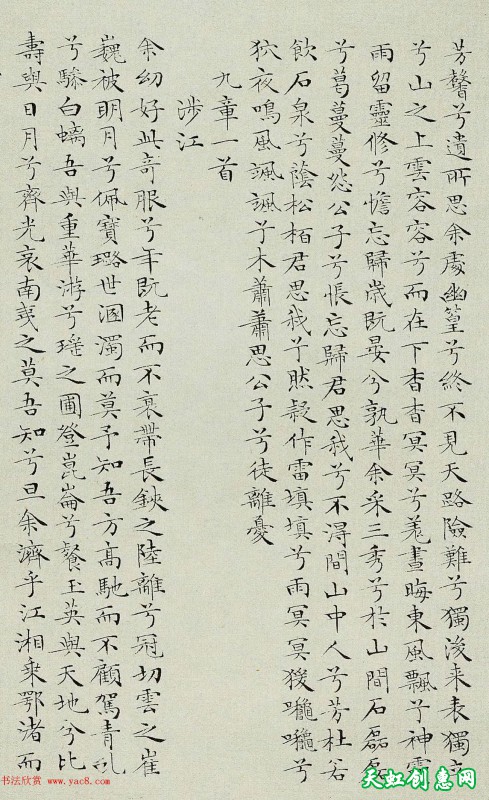 芳馨兮遺所思余處幽篁兮終不見天路險難兮獨後来表獨立
兮山之上雲容容兮而在下杳杳冥冥兮羌晝晦東風飄兮神靈
雨留靈修兮憺忘歸歲既晏兮孰華余采三秀兮於山間石磊磊
兮葛蔓蔓怨公子兮悵忘歸君思我兮不得間山中人兮芳杜若
飲石泉兮蔭松栢君思我兮然疑作雷填填兮雨冥冥猨啾啾兮
狖夜鳴風颯颯兮木蕭蕭思公子兮徒離憂
九章一首
涉江
余幼好此奇服兮年既老而不衰帶長鋏之陸離兮冠切雲之崔
巍被明月兮佩寶璐世溷濁而莫予知吾方高馳而不顧駕青虬
兮驂白螭吾與重華游兮瑤之圃登崑崙兮餐玉英與天地兮比
壽與日月兮齊光哀南夷之莫吾知兮旦余濟乎江湘乘鄂渚而
书法欣赏 www.yac8.com
天虹创意网